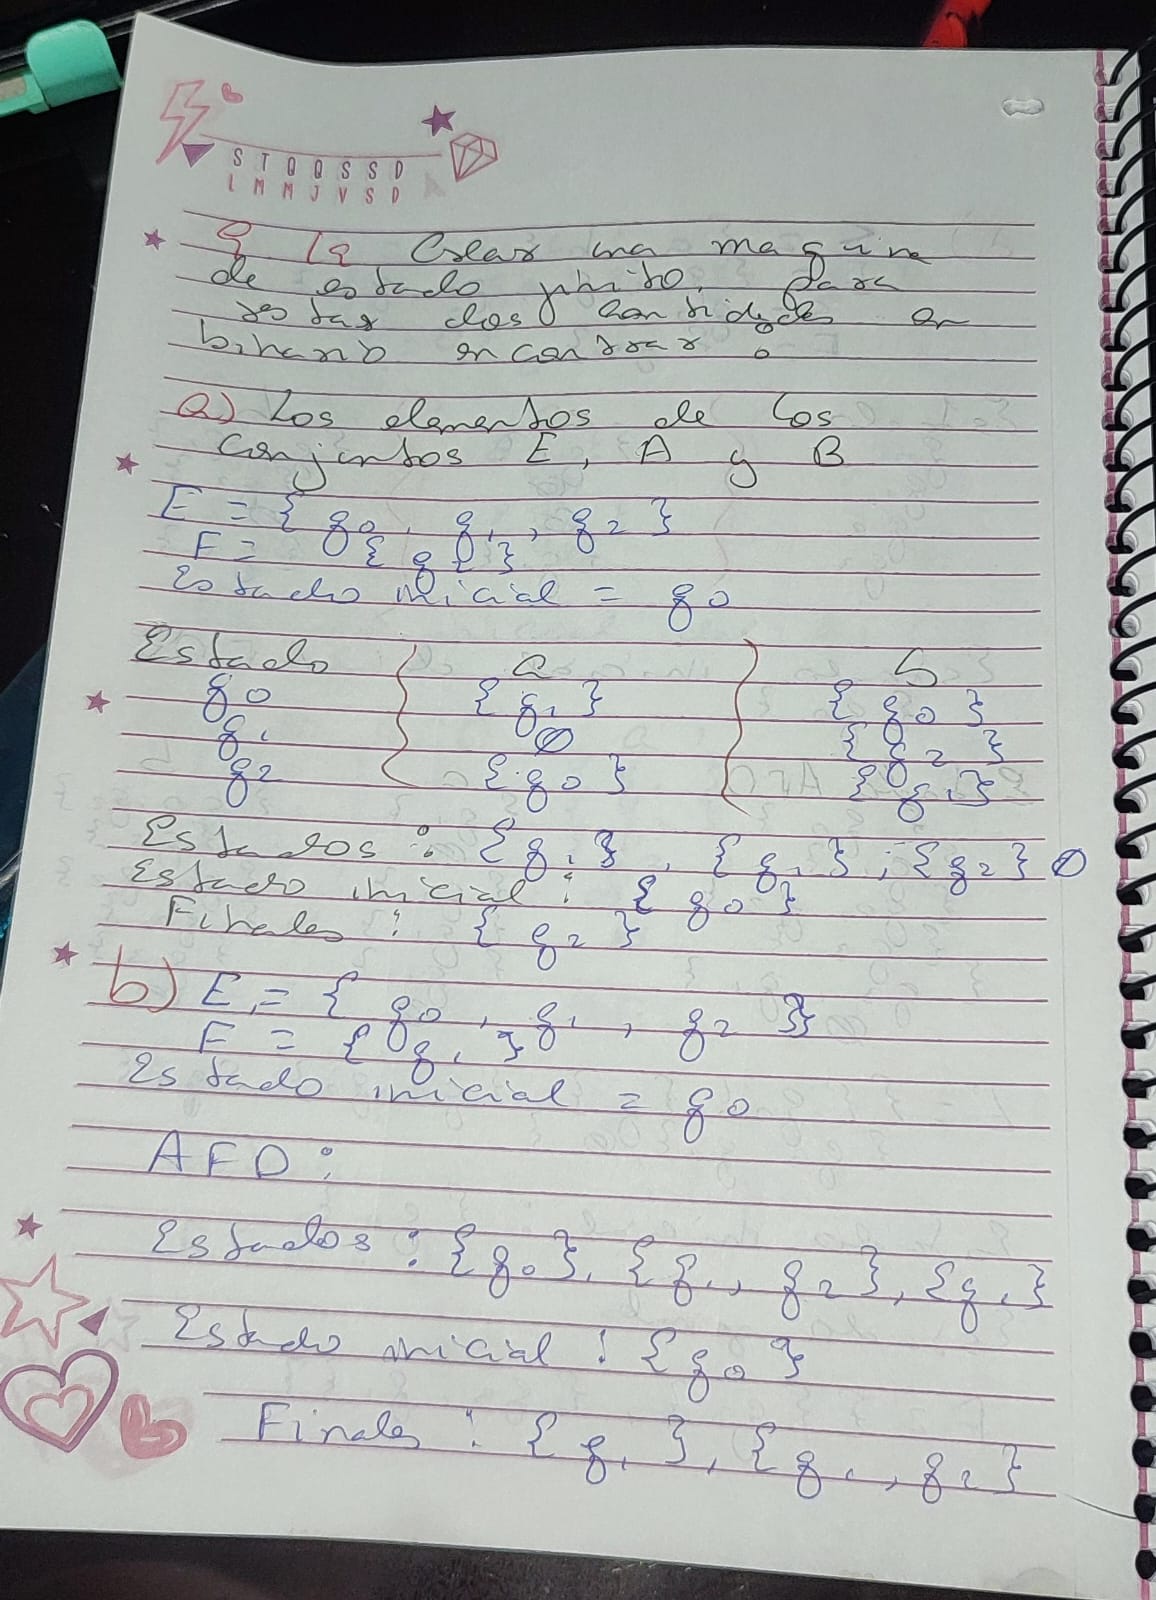 S T Q Q S S D
L M M J V S D
Crear una maquina
de estado finito, para
restar dos cantidades en
binario encontrar :
a) Los elementos de los
conjuntos E, A y B
E = { q0, q1, q2 }
F = { q1 }
Estado inicial = q0
Estado a b
q0 {q1} {q0}
q1 ∅ {q2}
q2 {q0} {q1}
Estados : {q1}, {q1}, {q2} ∅
Estado inicial : {q0}
Finales : {q2}
b) E = { q0, q1, q2 }
F = { q1 }
Estado inicial = q0
AFD :
Estados : {q0}, {q1, q2}, {q1}
Estado inicial : {q0}
Finales : {q1}, {q1, q2}